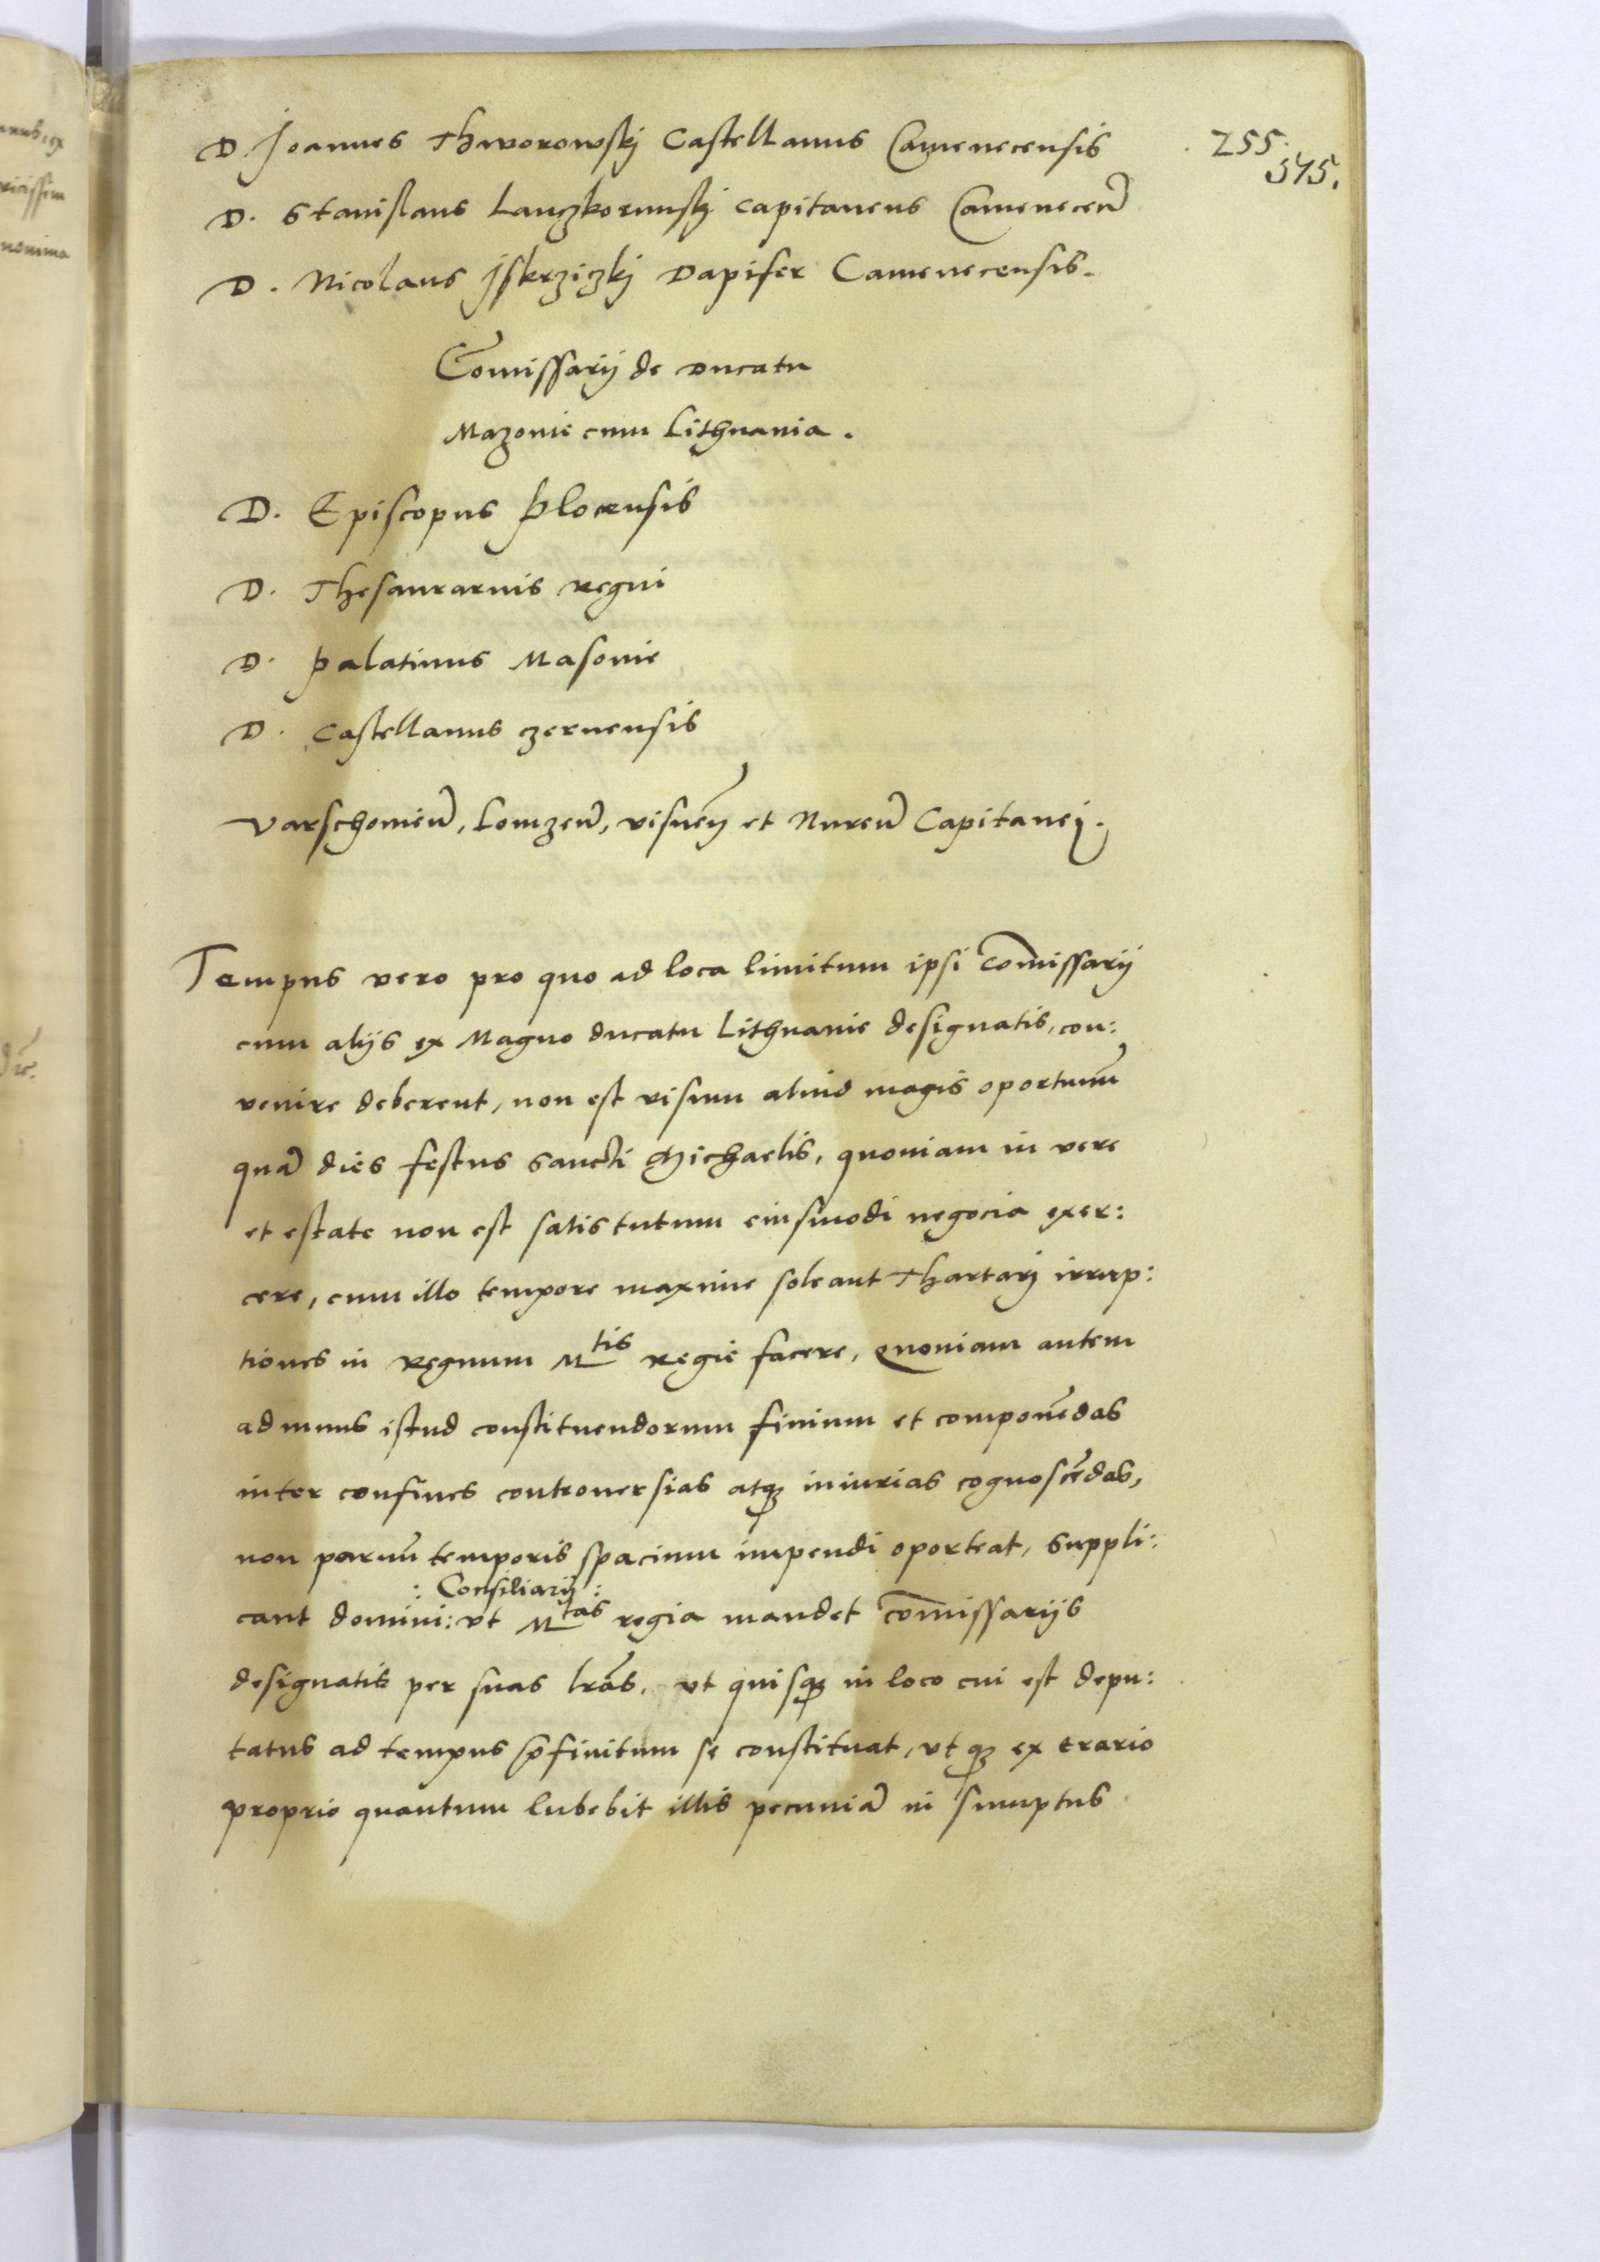 255.
575.
D. Joannes Thworowskj Castellanus Camenecensis
D. Stanislaus Lanczkorunskj Capitaneus Camenecen̄
D. Nicolaus Jskrziczkj Dapifer Camenecensis.
Com̄issarij de Ducatu
Mazouie cum Lithuania.
D. Episcopus Plocensis
D. Thesaurarius Regni
D. Palatinus Masouie
D. Castellanus Czernensis
Varschouien̄, Lomzen̄, visnēn et Nuren̄ Capitanej.
Tempus vero pro quo ad loca limitum ipsi com̄issarij
cum alijs ex Magno ducatu Lithuanie designatis, con:
venire deberent, non est visum aliud magis oportunū
quā dies festus Sancti Michaelis, quoniam in vere
et estate non est satis tutum eiusmodi negocia exer:
cere, cum illo tempore maxime soleant Thartarj irrup:
tiones in Regnum Mtis Regie facere, Quoniam autem
ad munus istud constituendorum finium et componēdas
inter confines controuersias atq; iniurias cognoscēdas,
non paruū temporis spacium impendi oporteat, suppli:
: Consiliarij :
cant domini: vt Mtas regia mandet com̄issarijs
designatis per suas lr̄as, vt quisq; in loco cui est depu:
tatus ad tempus p̄finitum se constituat, vt q; ex erario
proprio quantum lubebit illis pecuniā in sumptus